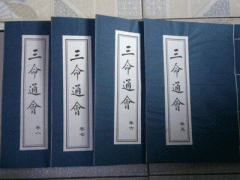 三命通會
卷八
三命通會
卷七
三命通會
卷六
三命通會
卷五